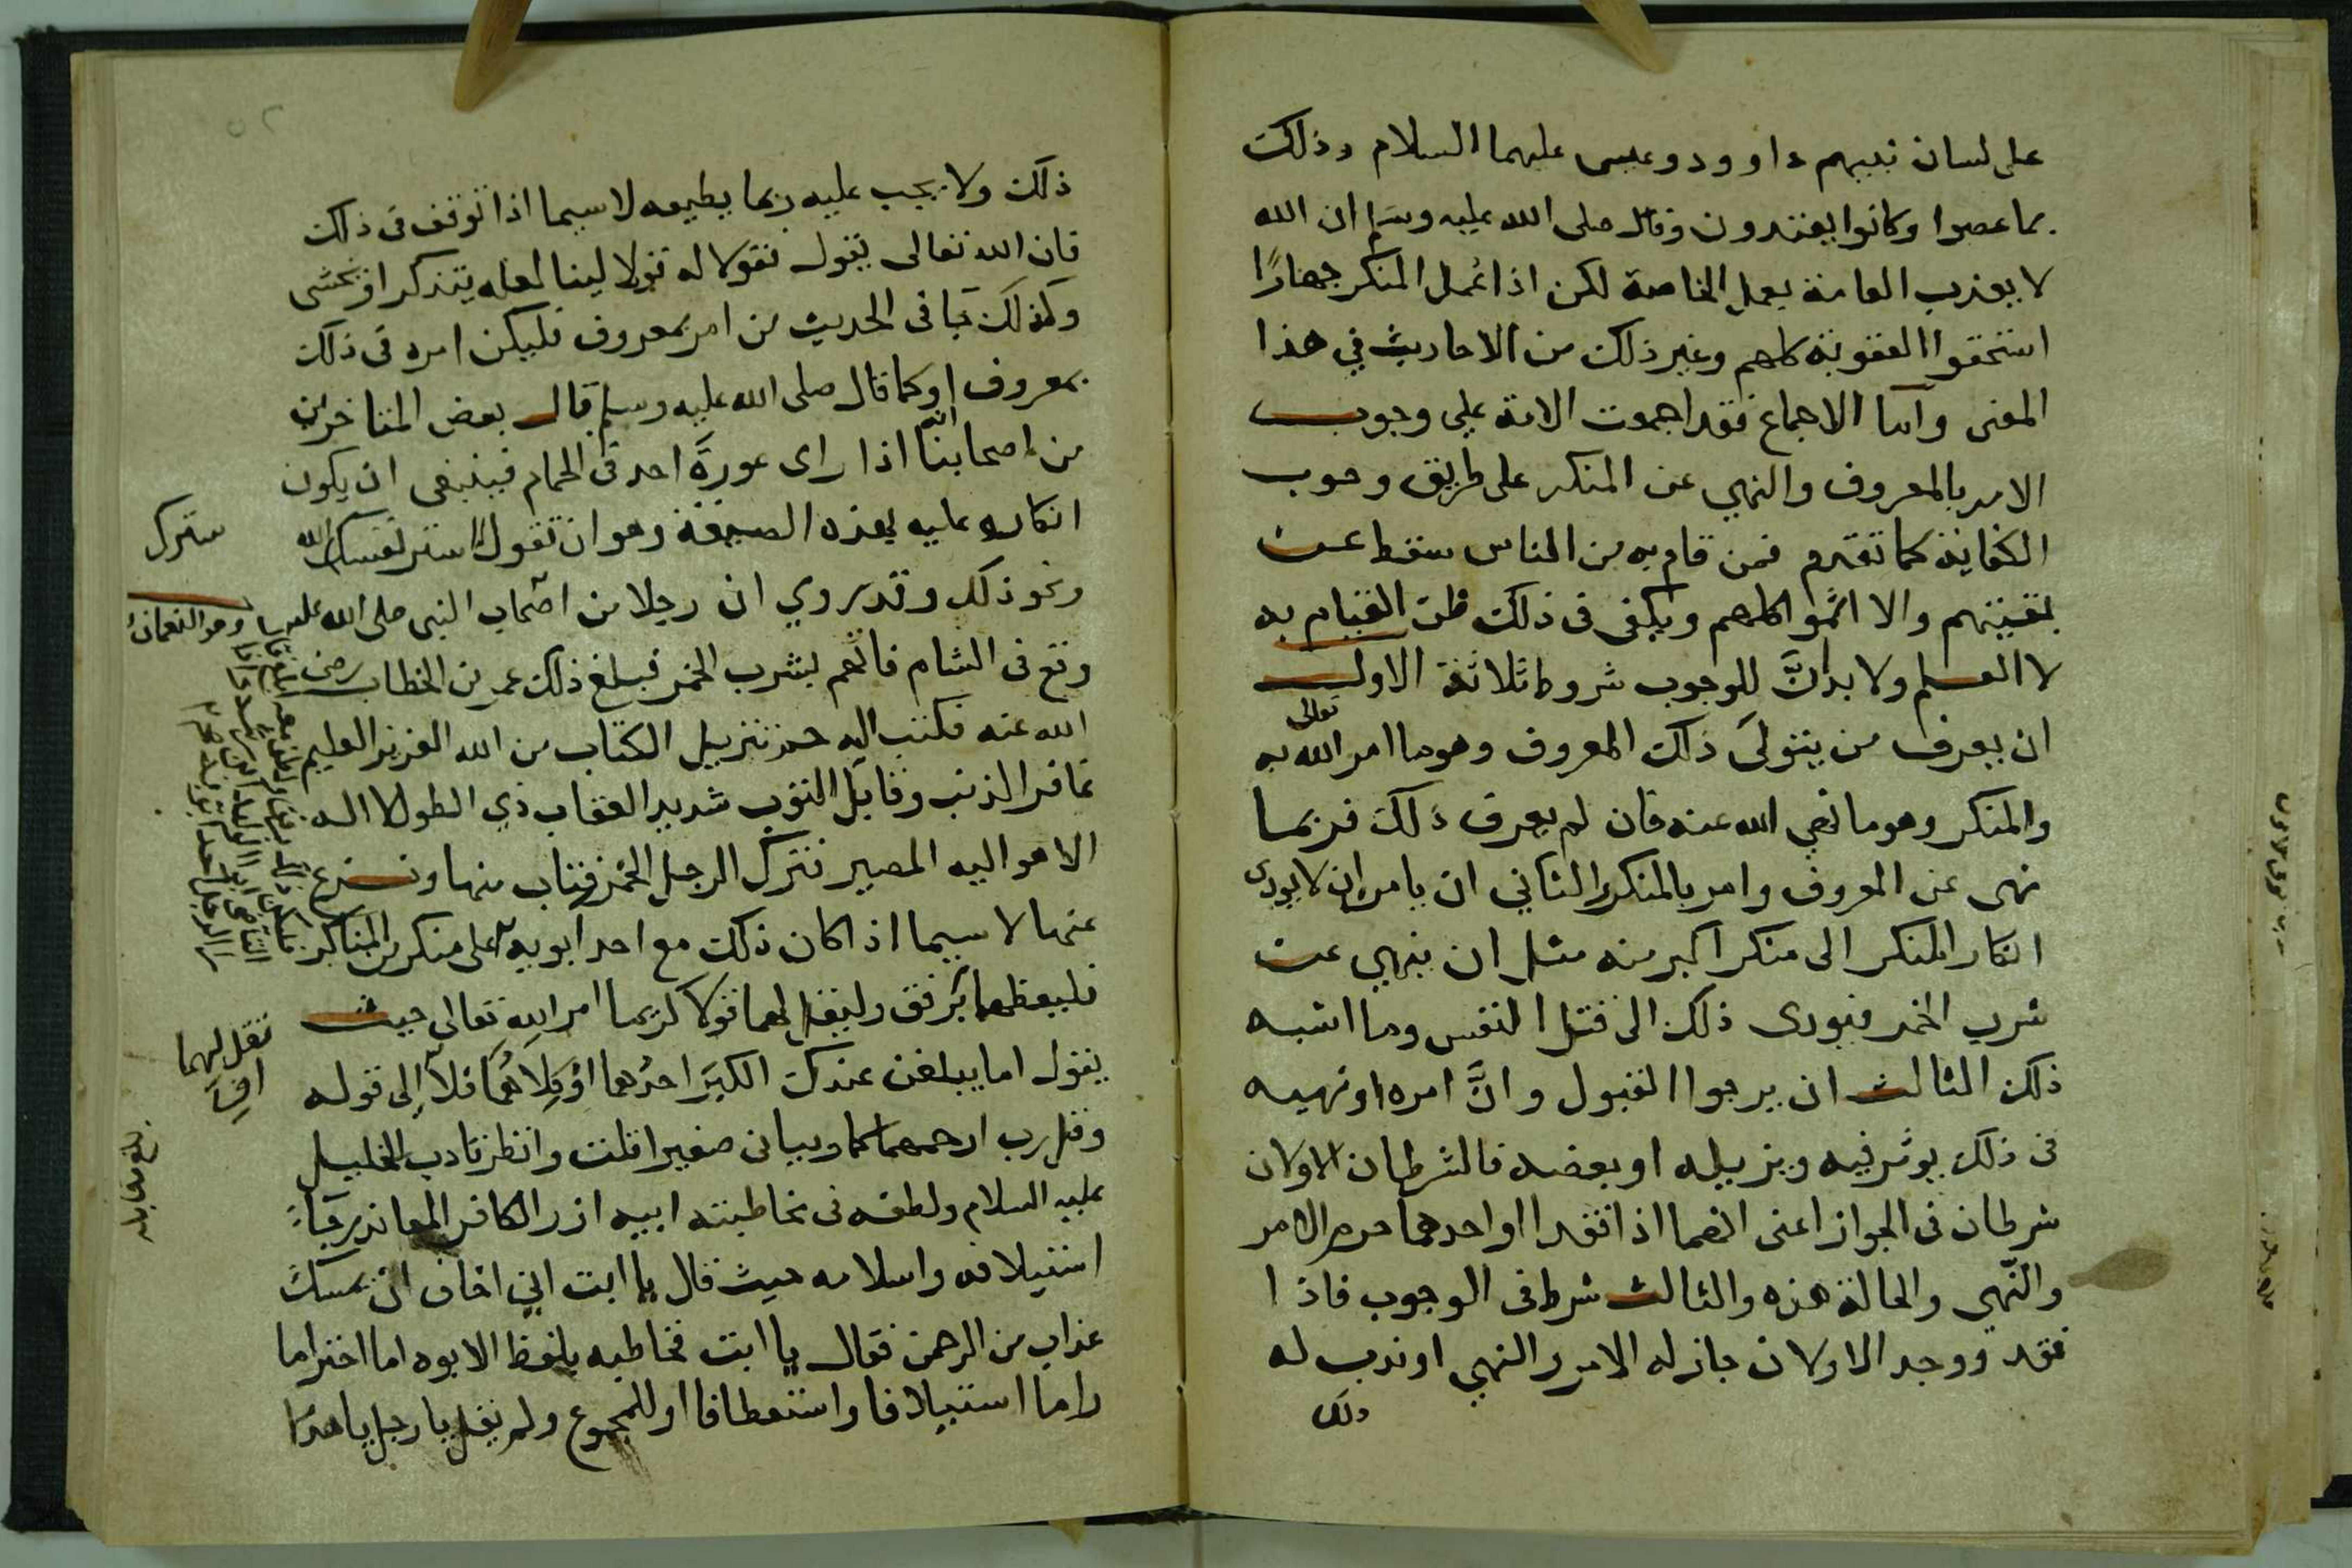 على لسان نبيهم داوود وعيسى عليهما السلام وذلك
بما عصوا وكانوا يعتدون وقال صلى الله عليه وسلم ان الله
لا يعذب العامة بعمل الخاصة لكن اذا عُمل المنكر جهارًا
استحقوا العقوبة كلهم وغير ذلك من الاحاديث في هذا
المعنى وأما الاجماع فقد اجمعت الامة على وجوب
الامر بالمعروف والنهي عن المنكر على طريق وجوب
الكفاية كما تقدم فمن قام به من الناس سقط عن
بقيتهم والا اثموا كلهم ويكفى فى ذلك ظن القيام به
لا العلم ولا بد انَّ للوجوب شروط ثلاثة الاول
ان يعرف من يتولى ذلك المعروف وهو ما امر الله تعالى به
والمنكر وهو ما نهي الله عنه فان لم يعرف ذلك فربما
نهى عن المعروف وامر بالمنكر الثاني ان يامر ان لا يودى
انكار المنكر الى منكر اكبر منه مثل ان ينهي عن
شرب الخمر فيودى ذلك الى قتل النفس وما اشبه
ذلك الثالث ان يرجوا القبول وانَّ امره او نهيه
فى ذلك يوثر فيه ويزيله او بعضه فالشرطان الاولان
شرطان فى الجواز اعنى انهما اذا فقدا او احدهما حرم الامر
والنّهي والحالة هذه والثالث شرط فى الوجوب فاذا
فقد ووجد الاولان جاز له الامر والنهي او ندب له
ذلك
٥٢
ذلك ولا يجب عليه ربما يطيعه لا سيما اذا توقف فى ذلك
فان الله تعالى يقول فقولا له قولا لينا لعله يتذكر او يخشى
وكذلك جا فى الحديث من امر بمعروف فليكن امره فى ذلك
بمعروف او كما قال صلى الله عليه وسلم قال بعض المتاخرين
من اصحابنا انه اذا راى عورةً احد فى الحمام فينبغى ان يكون
انكاره عليه بهذه الصيغة وهو ان تقول استر نفسك الله
سترك
ونحو ذلك وقد روي ان رجلا من اصحاب النبى صلى الله عليه
وهو النعمان
وقع فى الشام فاتهم بشرب الخمر فبلغ ذلك عمر بن الخطاب رضى
الله عنه فكتب اليه حم تنزيل الكتاب من الله العزيز العليم
غافر الذنب وقابل التوب شديد العقاب ذي الطول لا اله
الا هو اليه المصير فترك الرجل الخمر فتاب منها ونزع
عنها لا سيما اذا كان ذلك مع احد ابويه على منكر من المناكر
فليعظهما برفق وليقل لهما قولا كريما امر الله تعالى حيث
يقول اما يبلغن عندك الكبر احدُهما اوْ كِلاهُمَا فلا إلى قوله
تقل لهما
افٍ
وقل رب ارحمهما كما ربيانى صغيرا قلت وانظر تادب الخليل
عليه السلام ولطفه فى مخاطبته ابيه ازر الكافر المعاند رجاءَ
استيلافه واسلامه حيث قال يا ابت اني اخاف ان يمسك
عذاب من الرحمن فقال يا ابت فخاطبه بلفظ الابوه اما احتراما
واما استيلافا واستعطافا او للمجموع ولم يقل يا رجل يا هذا
بلغ مقابله